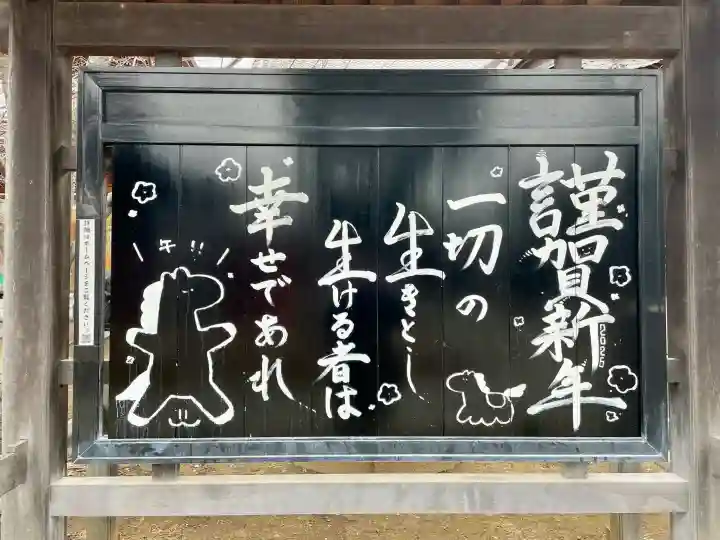 謹賀新年
2026
一切の
生きとし
生ける者は
幸せであれ
午!!